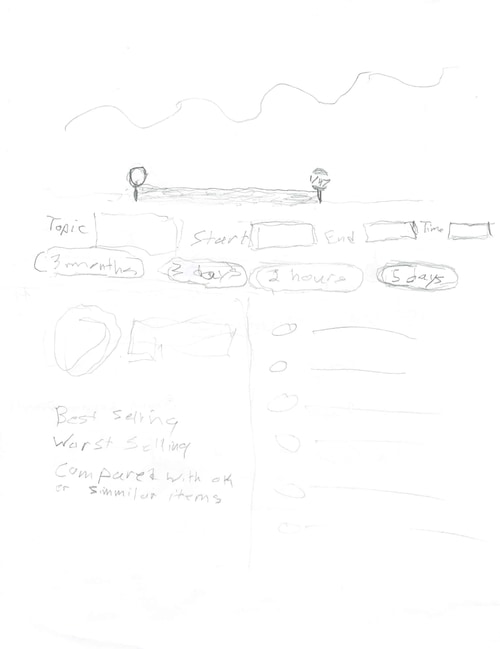 Topic Start End Time
3 months 2 days 2 hours 5 days
Best selling
Worst Selling
Compared with ok
er simmilar items